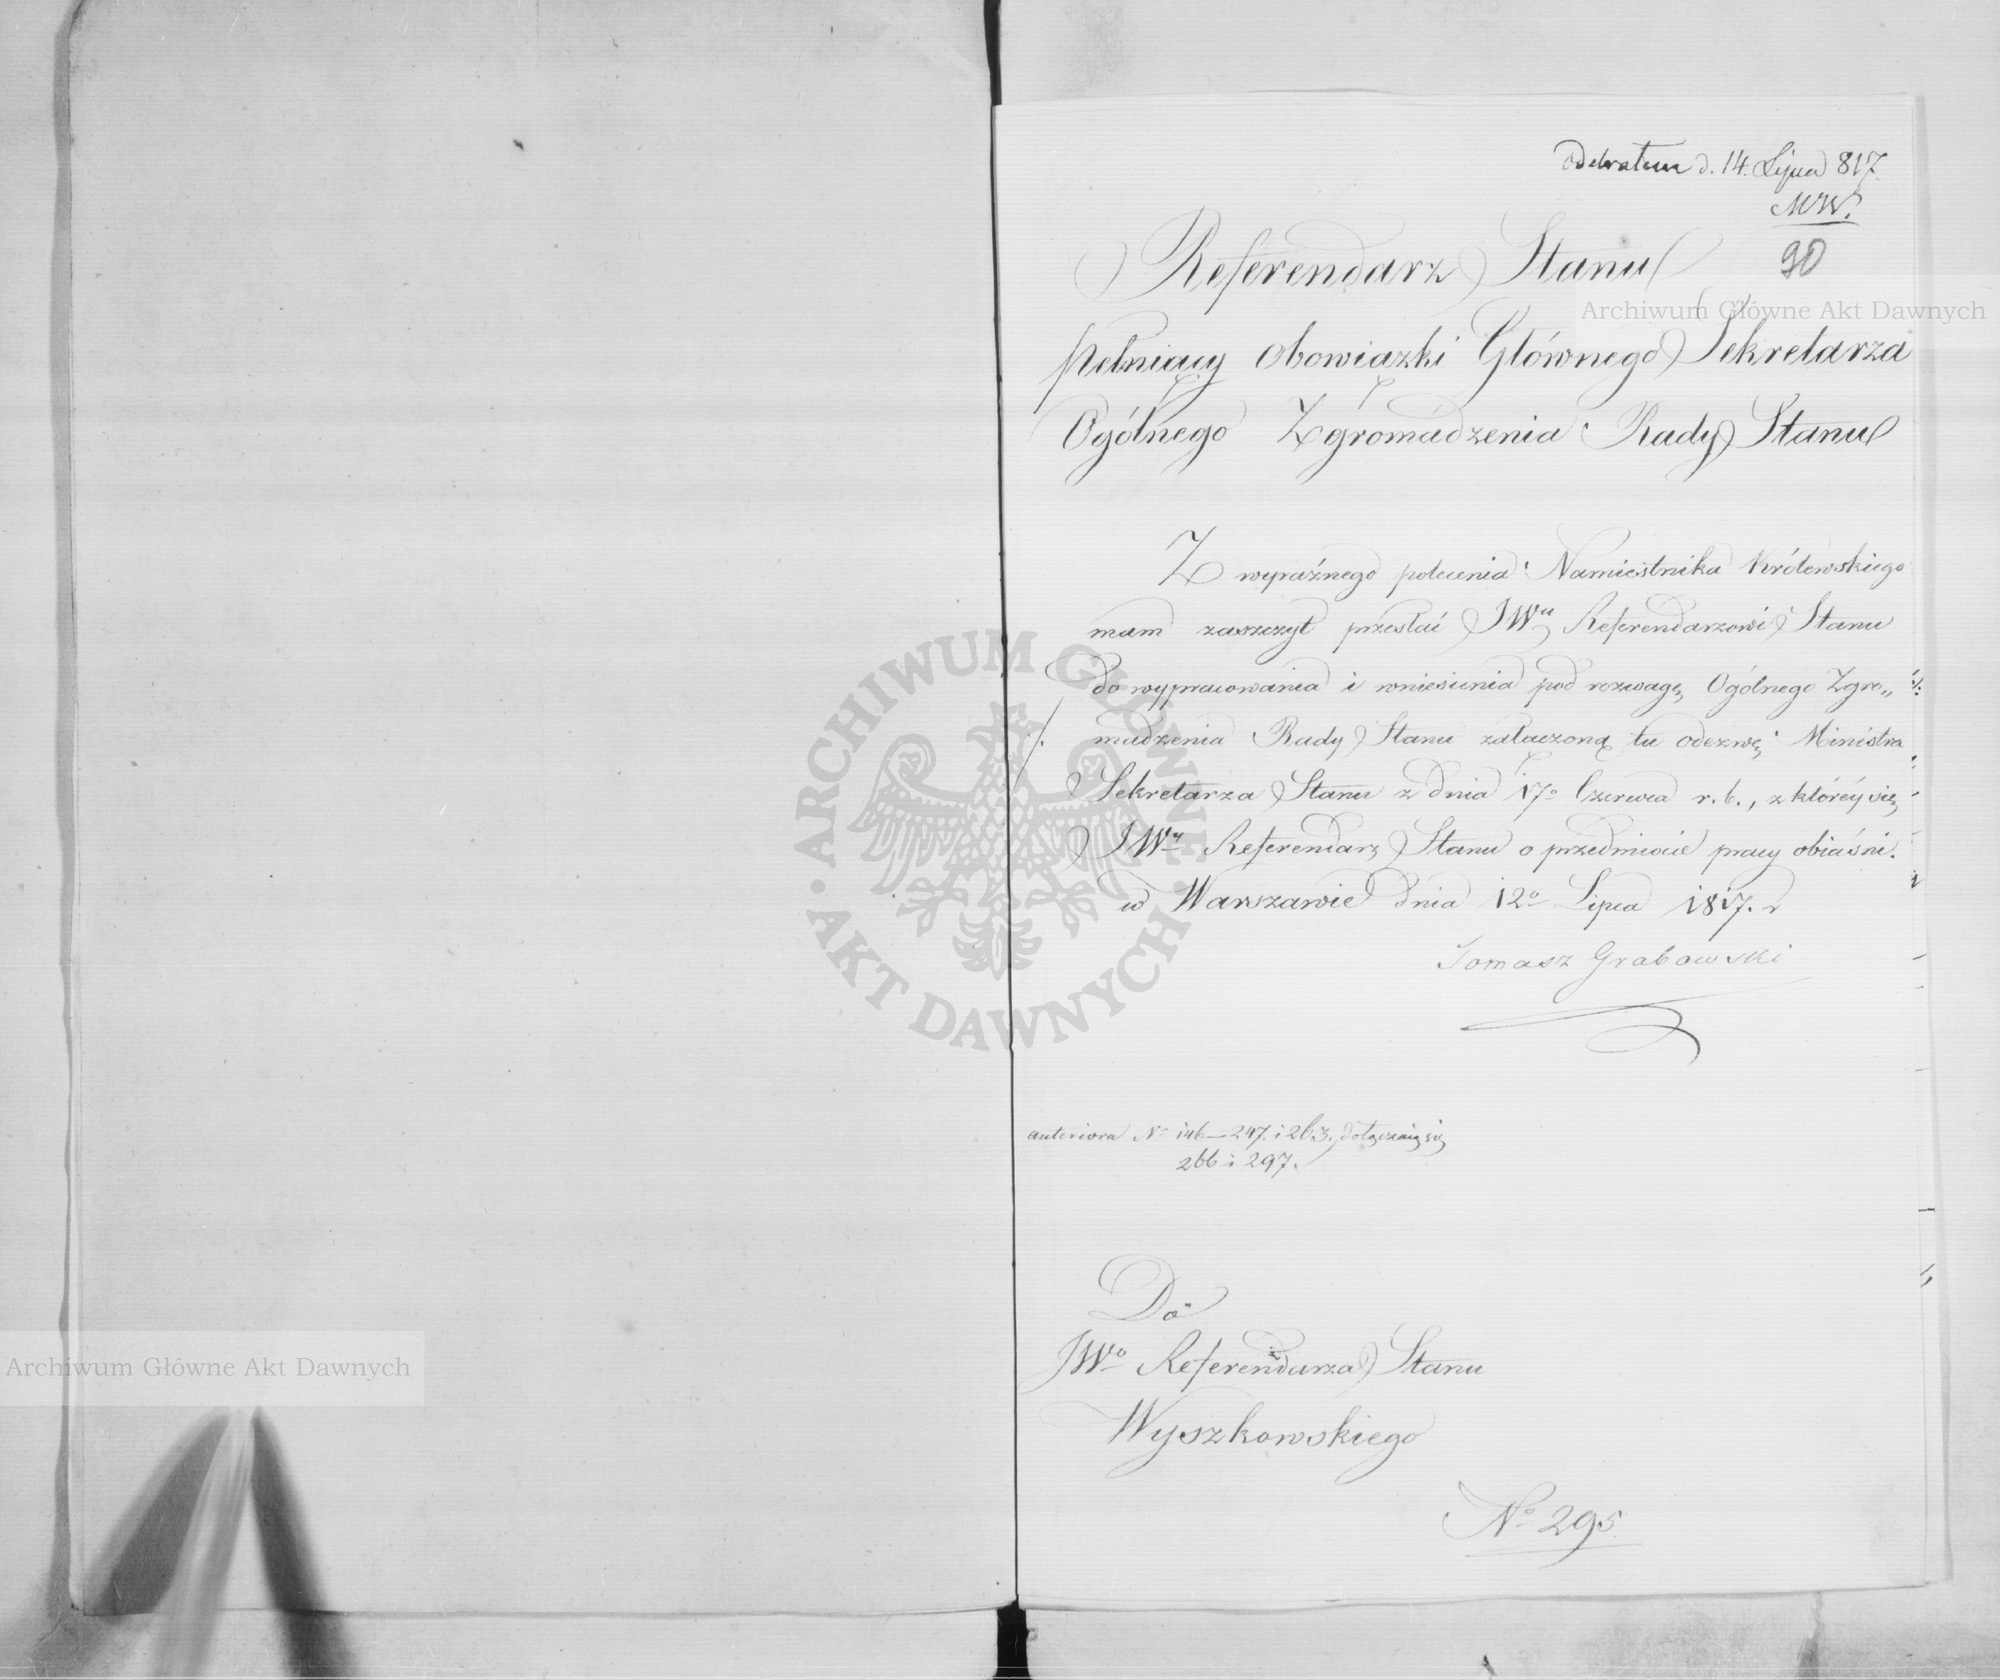 odebrałem d. 14. Lipca 817.
MW.
90
Referendarz Stanu
pełniący obowiązki Głównego Sekretarza
Ogólnego Zgromadzenia Rady Stanu
Z wyraźnego polecenia Namiestnika Królewskiego
mam zaszczyt przesłać JWu Referendarzowi Stanu
do wypracowania i wniesienia pod rozwagę Ogólnego Zgro„
madzenia Rady Stanu załączoną tu odezwę Ministra
Sekretarza Stanu z dnia 17o Czerwca r. b., z któréy się
JWy Referendarz Stanu o przedmiocie pracy obiaśni.
w Warszawie dnia 12o Lipca 1817. r
Tomasz Grabowski
anteriora No 146 — 247. i 263. dołączaią się
266 i 297.
Do
JWo Referendarza Stanu
Wyszkowskiego
No 295
Archiwum Główne Akt Dawnych
Archiwum Główne Akt Dawnych
ARCHIWUM GŁÓWNE AKT DAWNYCH